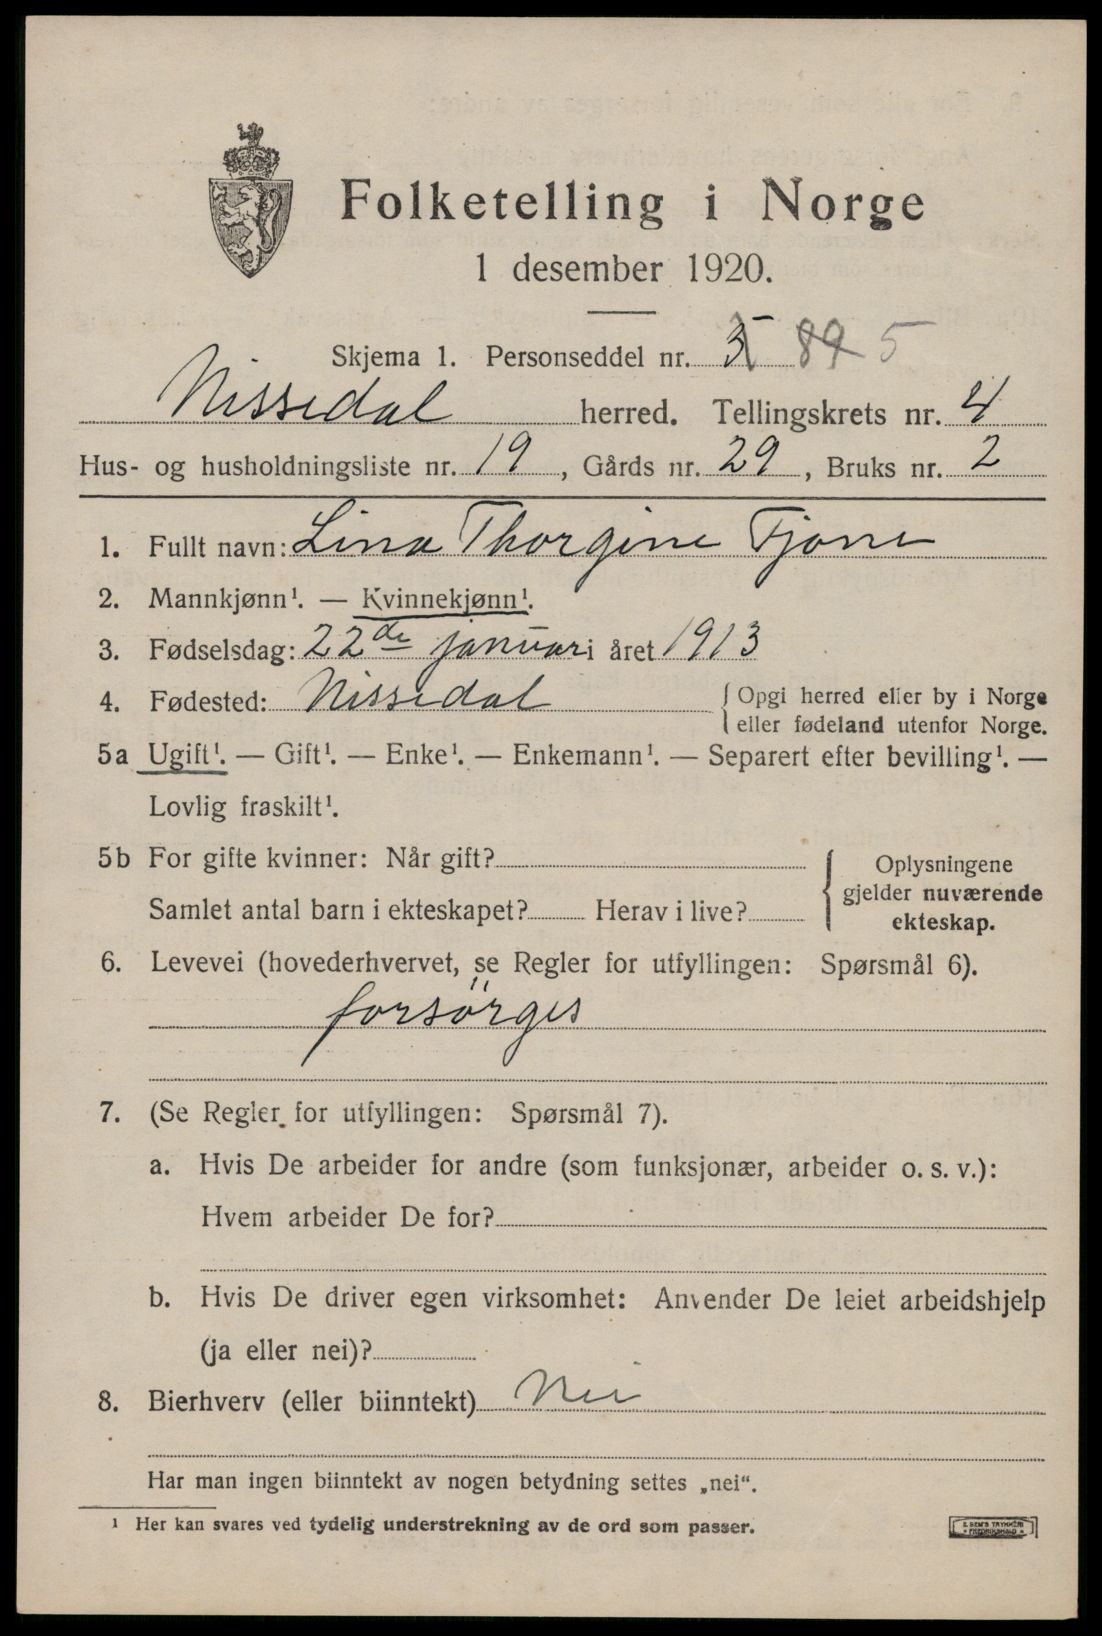 Folketelling i Norge
1 desember 1920.
Skjema 1. Personseddel nr. 5
Nissedal herred. Tellingskrets nr. 4
Hus- og husholdningsliste nr. 19, Gårds nr. 29, Bruks nr. 2
1. Fullt navn: Lina Thorgine Fjone
2. Mannkjønn¹. — Kvinnekjønn¹.
3. Fødselsdag: 22de januar i året 1913
4. Fødested: Nissedal {Opgi herred eller by i Norge
eller fødeland utenfor Norge.
5a Ugift¹. — Gift¹. — Enke¹. — Enkemann¹. — Separert efter bevilling¹. —
Lovlig fraskilt¹.
5b For gifte kvinner: Når gift?
Samlet antal barn i ekteskapet? Herav i live?
{Oplysningene
gjelder nuværende
ekteskap.
6. Levevei (hovederhvervet, se Regler for utfyllingen: Spørsmål 6).
forsörges
7. (Se Regler for utfyllingen: Spørsmål 7).
a. Hvis De arbeider for andre (som funksjonær, arbeider o. s. v.):
Hvem arbeider De for?
b. Hvis De driver egen virksomhet: Anvender De leiet arbeidshjelp
(ja eller nei)?
8. Bierhverv (eller biinntekt) Nei
Har man ingen biinntekt av nogen betydning settes „nei“.
¹ Her kan svares ved tydelig understrekning av de ord som passer.
E. SEM'S TRYKKERI
FREDRIKSHALD